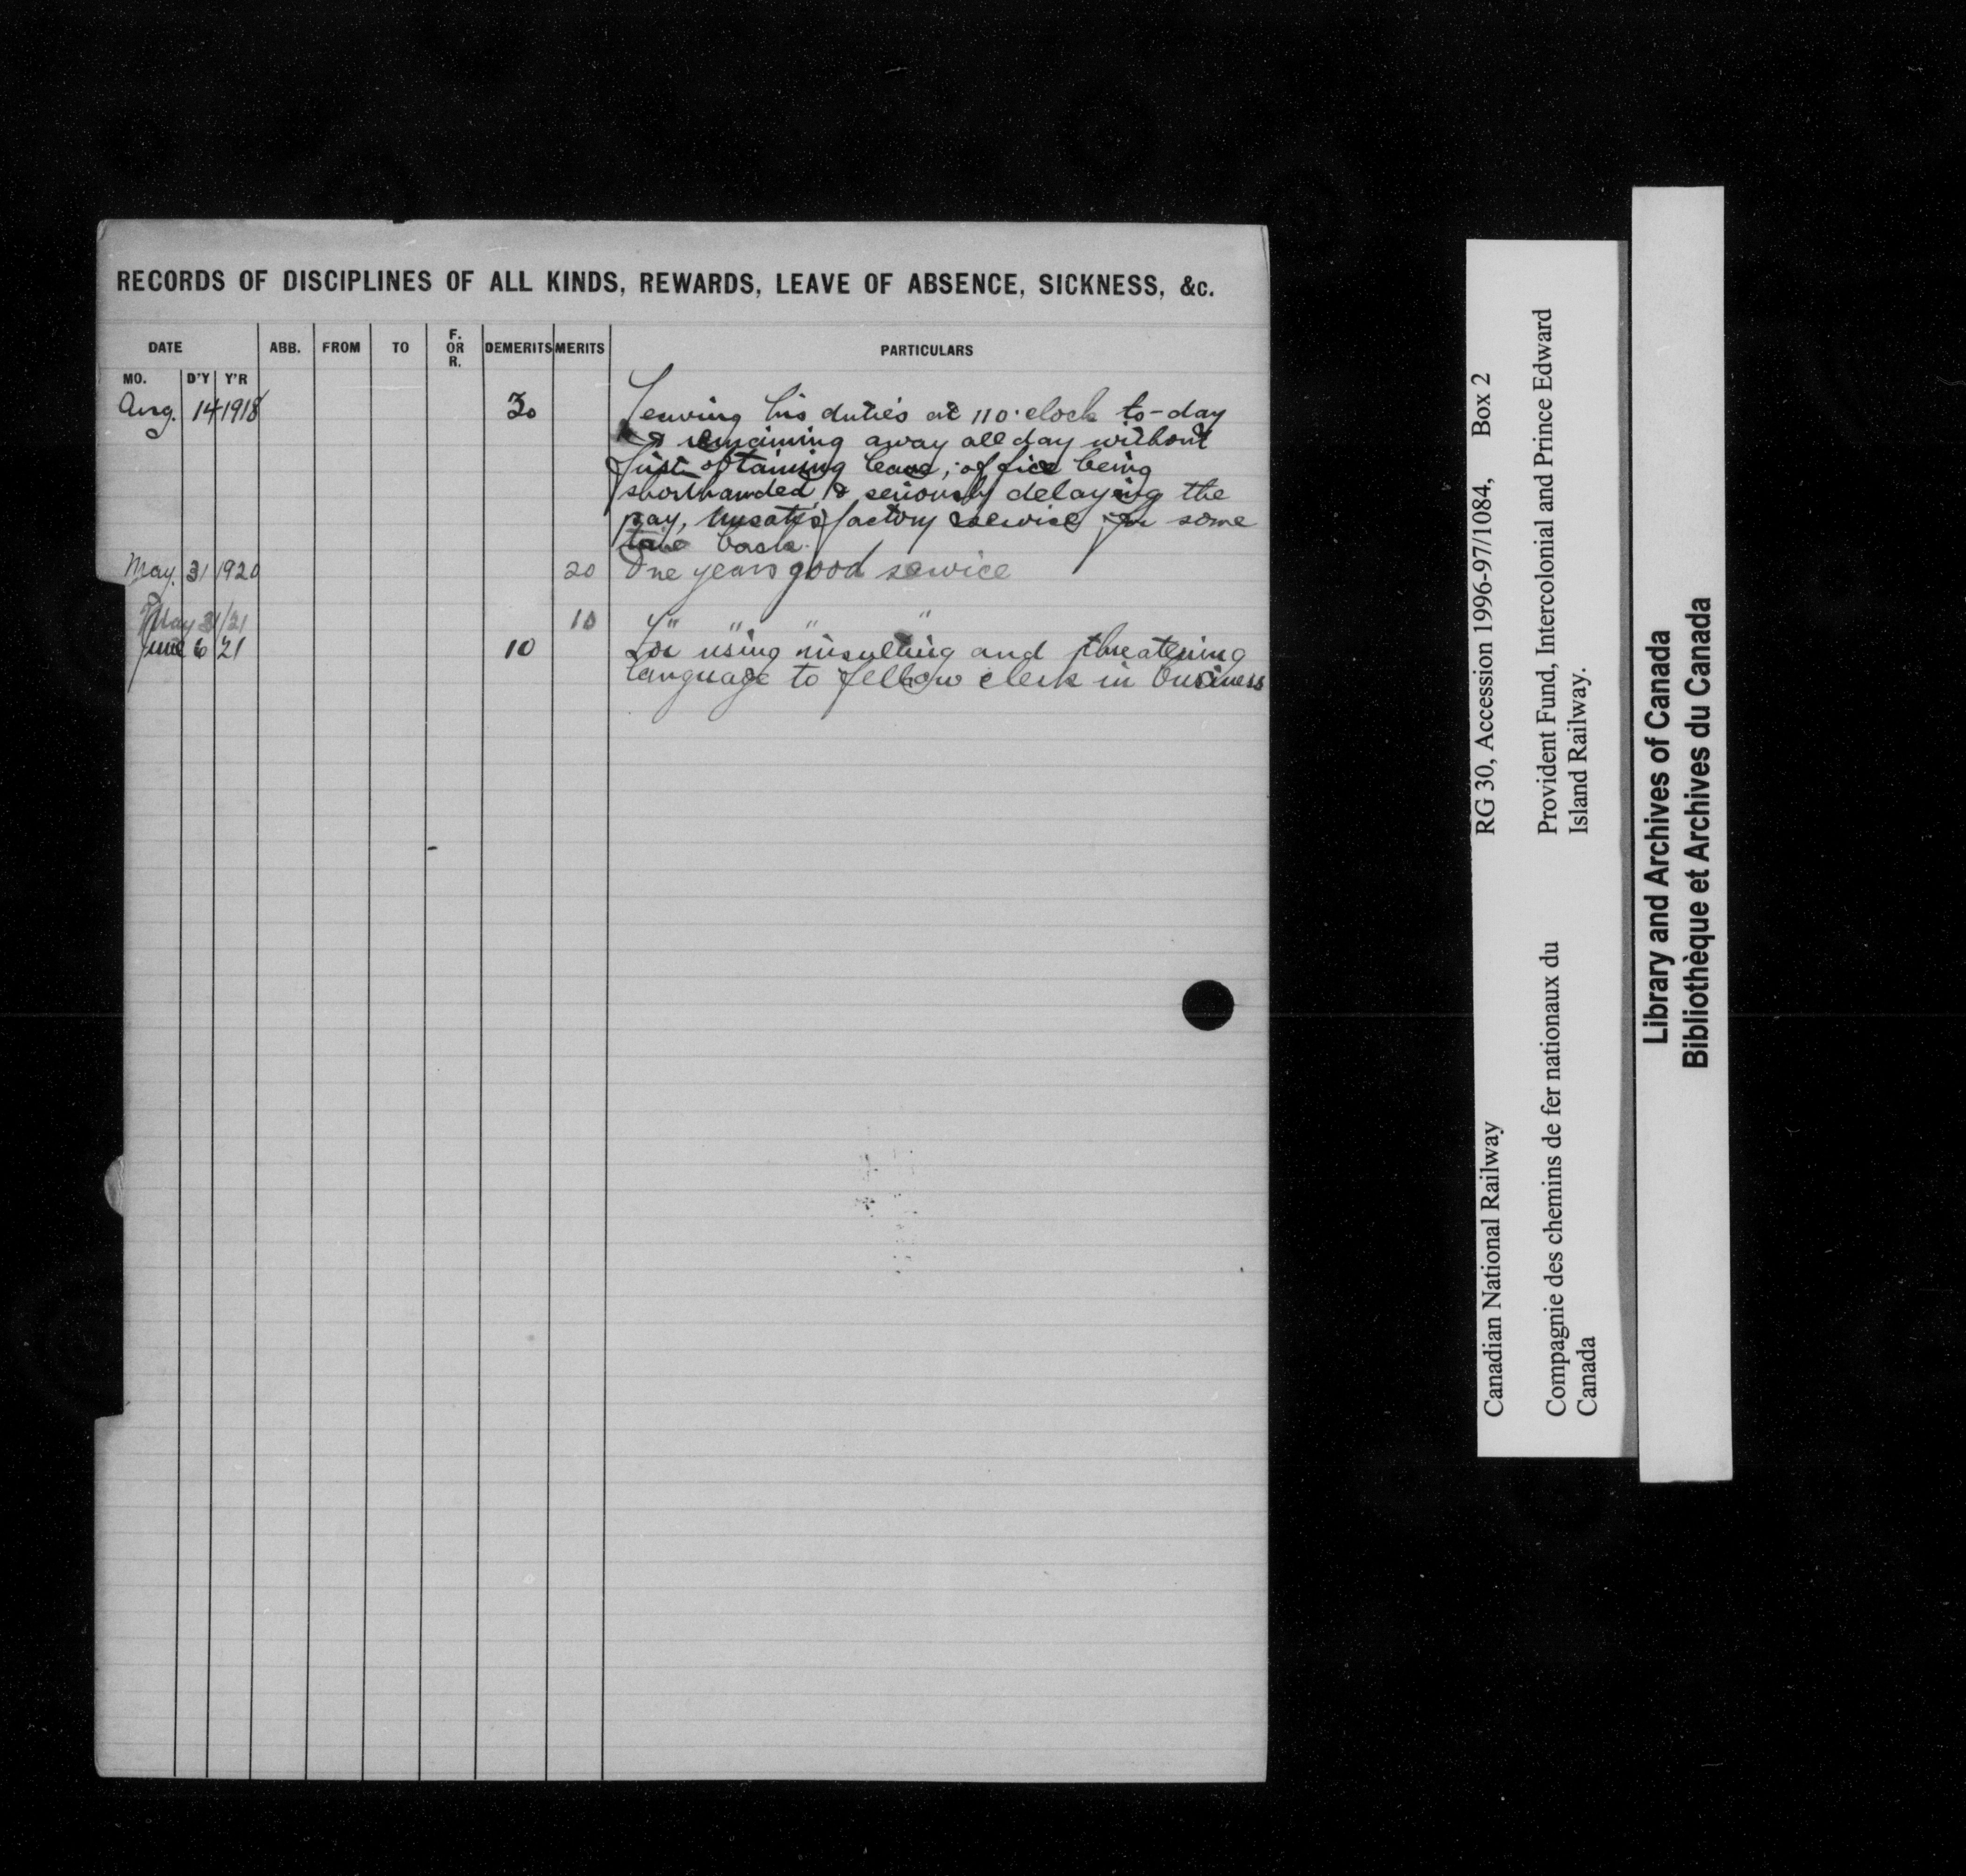 RECORDS OF DISCIPLINES OF ALL KINDS, REWARDS, LEAVE OF ABSENCE, SICKNESS, &c.
DATE ABB. FROM TO F. OR R. DEMERITS MERITS PARTICULARS
MO. D'Y Y'R
Aug. 14 1918 30 Leaving his duties at 11 o'clock to-day
& remaining away all day without
first obtaining leave; office being
shorthanded & seriously delaying the
pay, Unsatisfactory service for some
time back.
May. 31 1920 20 One years good service
May 31/21 10 " " " "
June 6 21 10 For using insulting and threatening
language to fellow clerk in business
Canadian National Railway RG 30, Accession 1996-97/1084, Box 2
Compagnie des chemins de fer nationaux du Provident Fund, Intercolonial and Prince Edward
Canada Island Railway.
Library and Archives of Canada
Bibliothèque et Archives du Canada